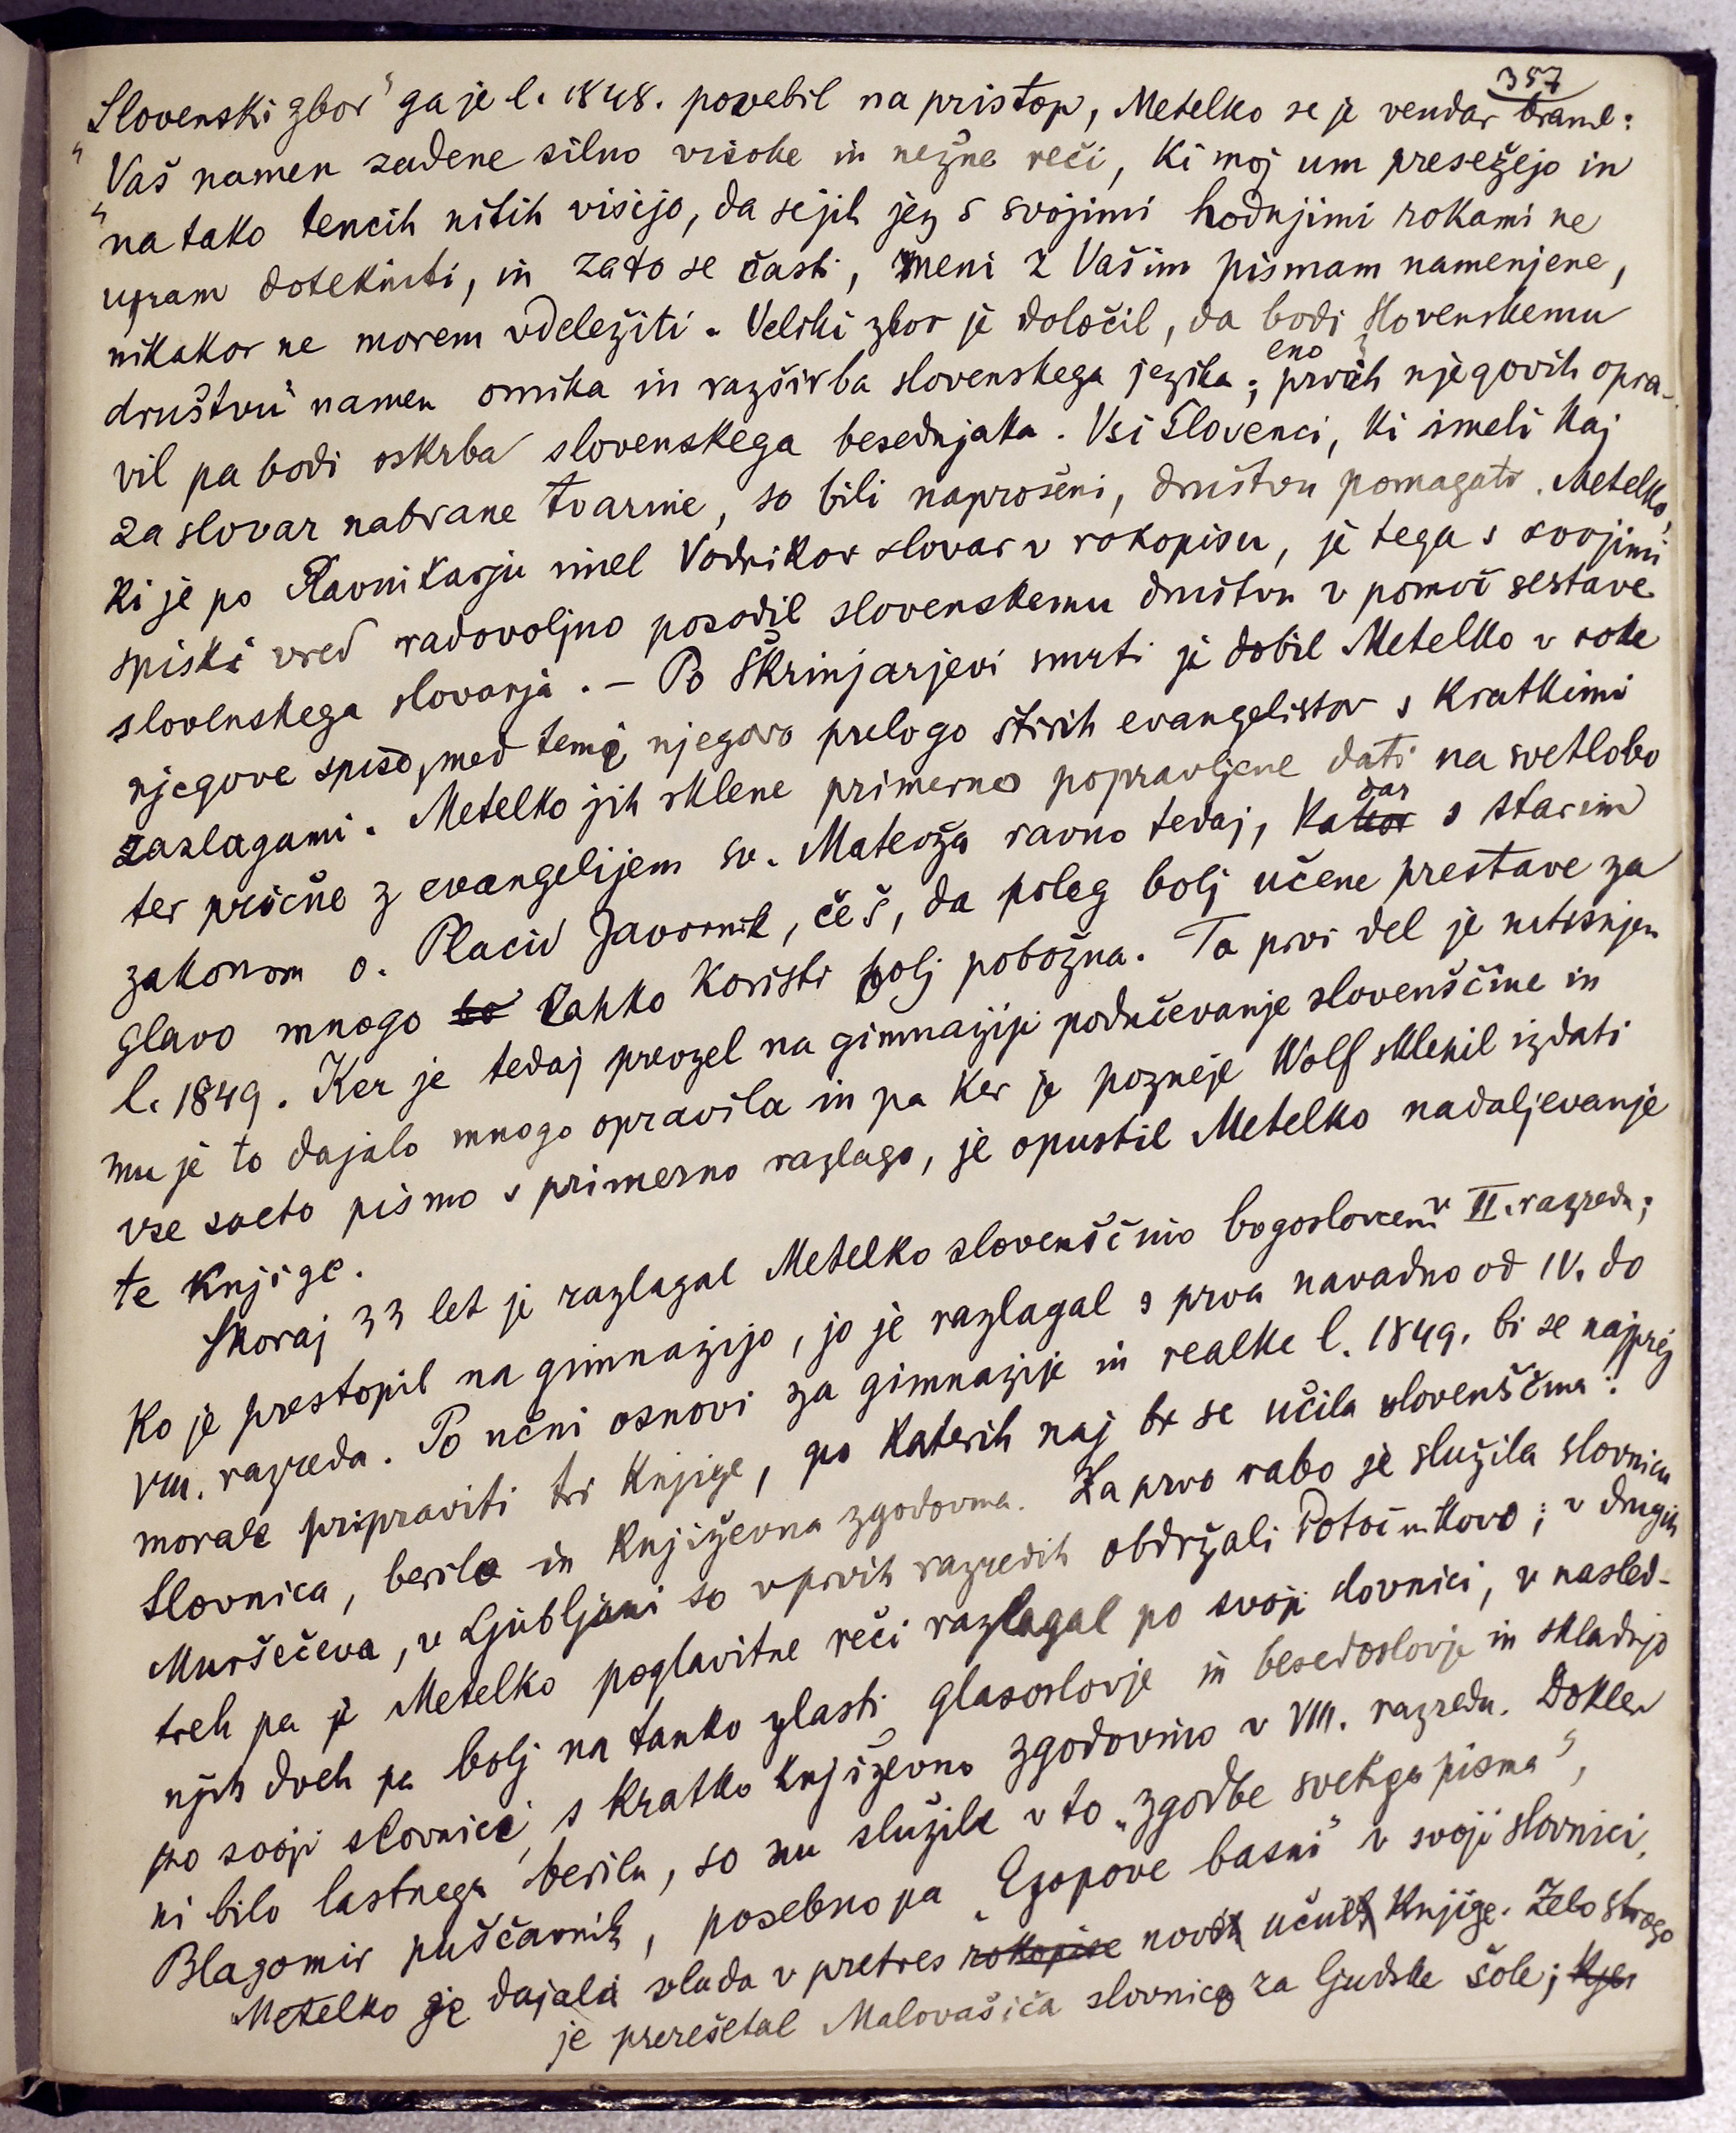 357
„Slovenski zbor“ ga je l. 1848. povabil na pristop, Metelko se je vendar branil:
„Vaš namen zadene silno visoke in nežne reči, ki moj um presežejo in
„na tako tencih nitih visijo, da se jih jez s svojimi hodnjimi rokami ne
upam dotekniti, in zato se časti, meni z Vašim pismam namenjene,
nikakor ne morem vdeležiti. Veliki zbor je določil, da bodi slovenskemu
društvu namen omika in razširba slovenskega jezika; eno prvih njegovih opra-
vil pa bodi oskrba slovenskega besednjaka. Vsi Slovenci, ki imeli kaj
za slovar nabrane tvarine, so bili naprošeni, društvu pomagati. Metelko,
ki je po Ravnikarju imel Vodnikov slovar v rokopisu, je tega s svojimi
spiski vred radovoljno posodil slovenskemu društvu v pomoč sestave
slovenskega slovarja. – Po Škrinjarjevi smrti je dobil Metelko v roke
njegove spise, med temi njegovo prelogo štirih evangelistov s kratkimi
razlagami. Metelko jih sklene primerno popravljene dati na svetlobo
ter prične z evangelijem sv. Matevža ravno tedaj, kakor dar s starim
zakonom o. Placid Javornik, češ, da poleg bolj učene prestave za
glavo mnogo bo lahko koristi bolj pobožna. Ta prvi del je natisnjen
l. 1849. Ker je tedaj prevzel na gimnaziji podučevanje slovenščine in
mu je to dajalo mnogo opravila in pa ker je pozneje Wolf sklenil izdati
vse sveto pismo s primerno razlago, je opustil Metelko nadaljevanje
te knjige.
Skoraj 33 let je razlagal Metelko slovenščino bogoslovcem v II. razredu;
ko je prestopil na gimnazijo, jo je razlagal s prva navadno od IV. do
VIII. razreda. Po učni osnovi za gimnazije in realke l. 1849. bi se najprej
morale pripraviti tri knjige, po katerih naj bi se učila slovenščina:
slovnica, berilo in književna zgodovina. Za prvo rabo je služila slovnica
Muršečeva, v Ljubljani so v prvih razredih obdržali Potočnikovo; v drugih
treh pa je Metelko poglavitne reči razlagal po svoji slovnici, v nasled-
njih dveh pa bolj na tanko zlasti glasoslovje in besedoslovje in skladnjo
po svoji slovnici, s kratko književno zgodovino v VIII. razredu. Dokler
ni bilo lastnega berila, so mu služile v to „zgodbe svetiga pisma“,
Blagomir puščavnik, posebno pa „Ezopove basni“ v svoji slovnici.
Metelko je dajala vlada v pretres rokopise novih učnih knjige. Zelo strogo
je prerešetal Malovašiča slovnico za ljudske šole; kjer